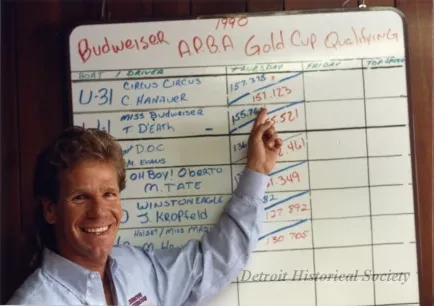 1990
Budweiser APBA Gold Cup Qualifying
BOAT / DRIVER THURSDAY FRIDAY TOP SPEED
CIRCUS CIRCUS
U-31 C. HANAUER 151.123
MISS BUDWEISER
T. D'EATH - 5.521
DOC
M. EVANS .461
OH BOY! OBERTO
M. TATE .349
WINSTON EAGLE 82
J. KROPFELD 127.892
130.705
Detroit Historical Society